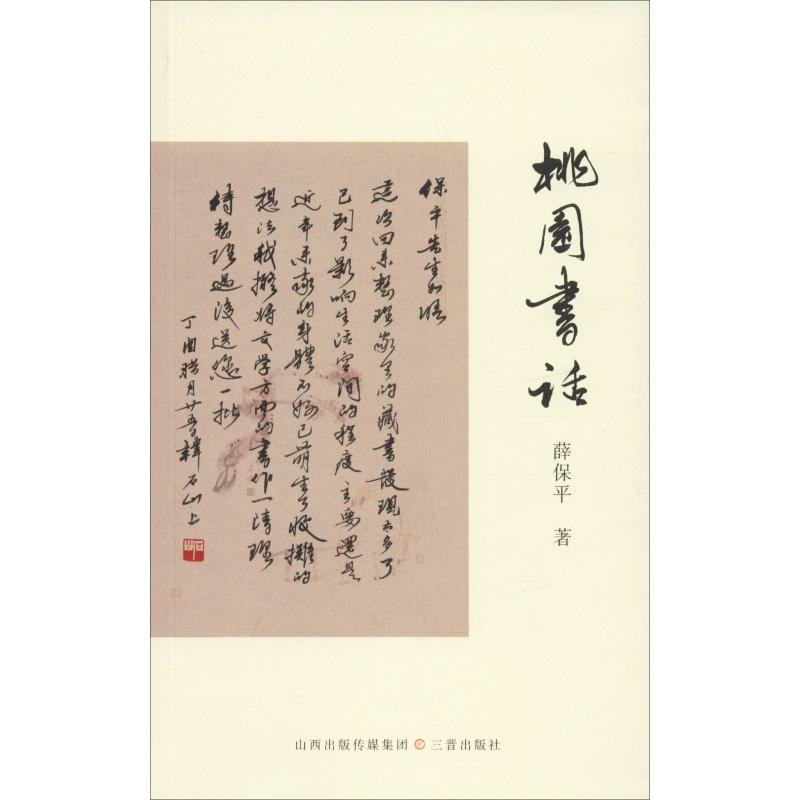 桃園書话
薛保平 著
保平先生如晤
這次回来整理家里的藏書發現太多了
已到了影响生活空间的程度主要還是
近年来家的身體不好已萌生了收攤的
想法我擬将文学方面的書作一清理
待整理過後送您一批
丁酉腊月廿五日韓石山上
山西出版传媒集团 三晋出版社